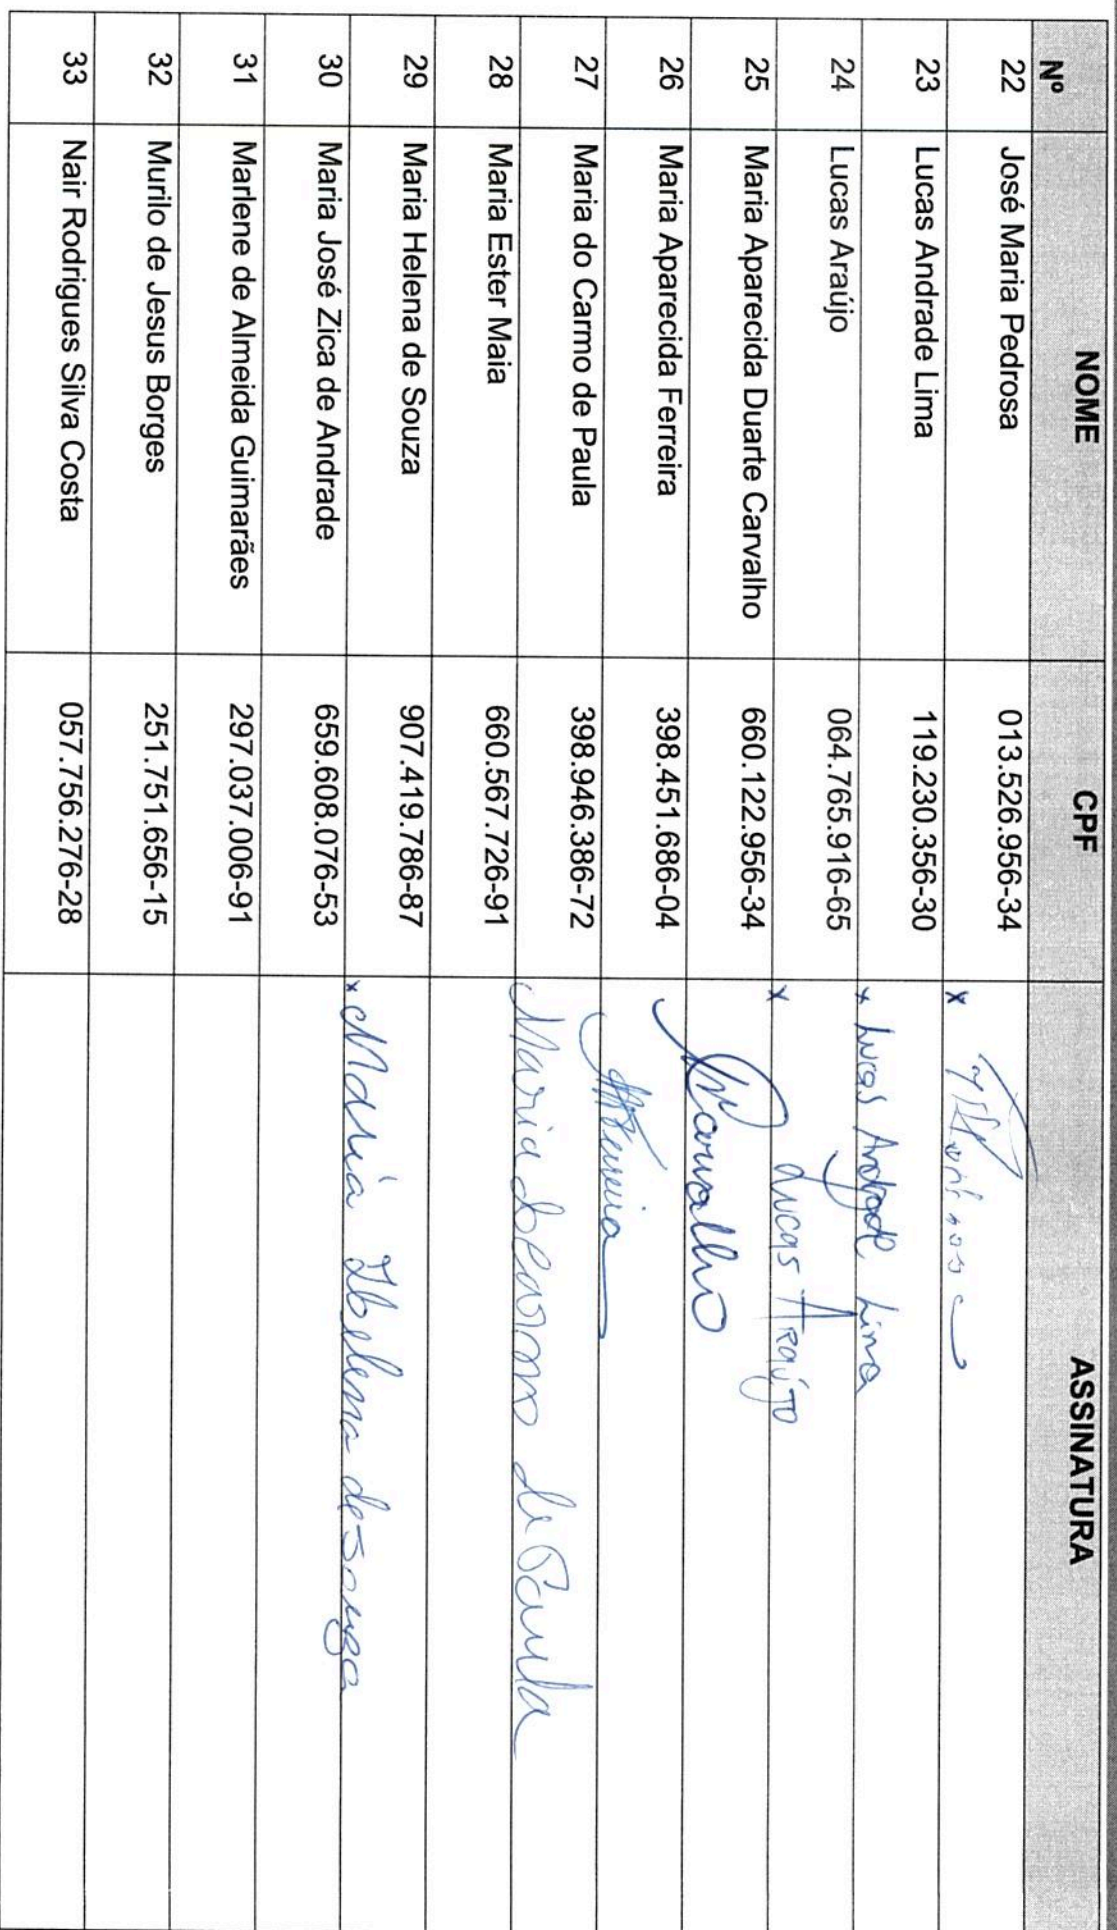 Nº NOME CPF ASSINATURA
22 José Maria Pedrosa 013.526.956-34 x
23 Lucas Andrade Lima 119.230.356-30 x Lucas Andrade Lima
24 Lucas Araújo 064.765.916-65 x Lucas Araújo
25 Maria Aparecida Duarte Carvalho 660.122.956-34 Carvalho
26 Maria Aparecida Ferreira 398.451.686-04 Ferreira
27 Maria do Carmo de Paula 398.946.386-72 Maria do Carmo de Paula
28 Maria Ester Maia 660.567.726-91
29 Maria Helena de Souza 907.419.786-87 x Maria Helena de Souza
30 Maria José Zica de Andrade 659.608.076-53
31 Marlene de Almeida Guimarães 297.037.006-91
32 Murilo de Jesus Borges 251.751.656-15
33 Nair Rodrigues Silva Costa 057.756.276-28